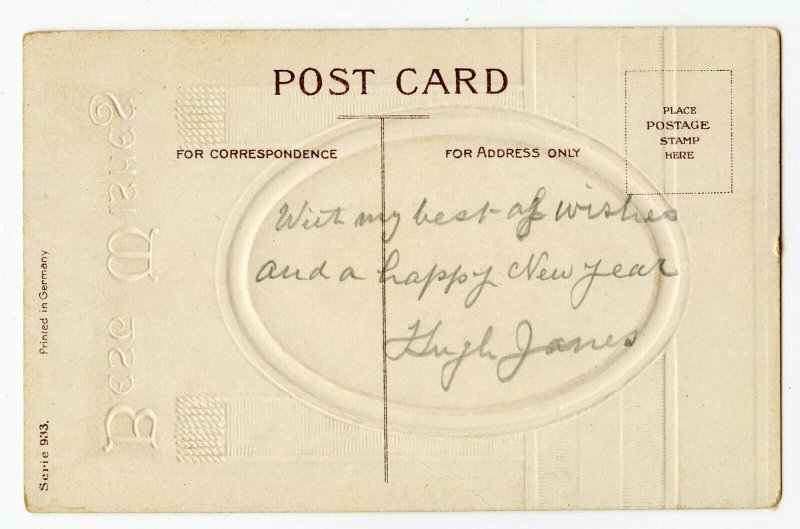 POST CARD
FOR CORRESPONDENCE
FOR ADDRESS ONLY
PLACE
POSTAGE
STAMP
HERE
With my best of wishes
and a happy New year
Hugh Janes
Best Wishes
Printed in Germany
Serie 933.